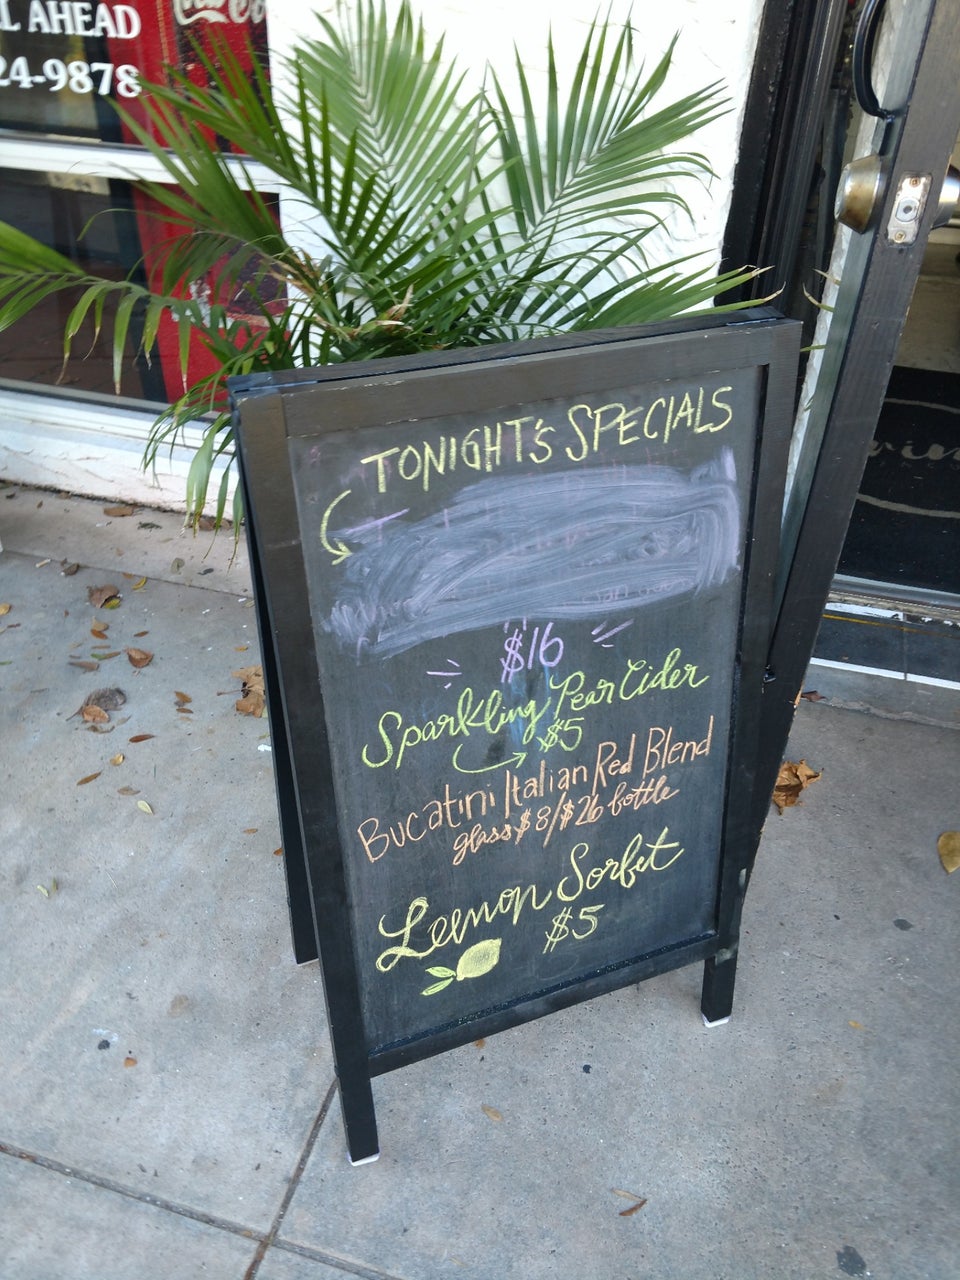 L AHEAD
24-9878
TONIGHT'S SPECIALS
$16
Sparkling Pear Cider
$5
Bucatini Italian Red Blend
glass $8/$26 bottle
Lemon Sorbet
$5